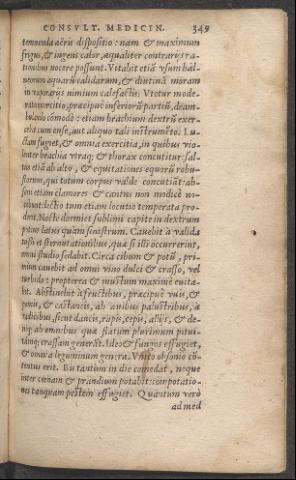 CONSVLT. MEDICIN. 349
temnenda aëris dispositio: nam & maximum
frigus, & ingens calor, æqualiter contrarijs ra-
tionibus nocere possunt. Vitabit etiã vsum bal-
neorum aquarũ calidarum, & diutinã moram
in vaporarijs nimium calefactis. Vtetur mode-
rato exercitio, præcipuè inferiorũ partiũ, deam-
bulatio cõmodè: etiam brachium dextrũ exer-
ceat cum ense, aut aliquo tali instrumẽto. Lu-
ctam fugiet, & omnia exercitia, in quibus vio-
lenter brachia vtraq; & thorax concutitur: sal-
tus etiã ab alto, & equitationes equorũ robu-
storum, qui totum corpus valde concutiũt: ab-
sint etiam clamores & cantus non modicè no-
cibunt: lecto tum etiam locutio temperata pro-
derit. Nocte dormiet sublimi capite in dextrum
potius latus quàm sinistrum. Cauebit à valida
tussi et sternutationibus, quæ si illi occurrerint,
omni studio sedabit. Circa cibum & potũ, pri-
mùm cauebit ab omni vino dulci & crasso, vel
turbido: propterea & mustum maximè euita-
bit. Abstinebit à fructibus, præcipuè vuis, &
pomis, & castaneis, ab auibus palustribus, à
radicibus, sicut daucis, rapis, cepis, alijs, & de-
niq; ab omnibus quæ flatum plurimum pitui-
tamq; crassam generãt. Ideo & fungos effugiet,
& omnia leguminum genera. Vnico obsonio cõ-
tentus erit. Bis tantùm in die comedat, neque
inter cœnam & prandium potabit: compotatio-
nes tanquam pestem effugiet. Quantum verò
ad med